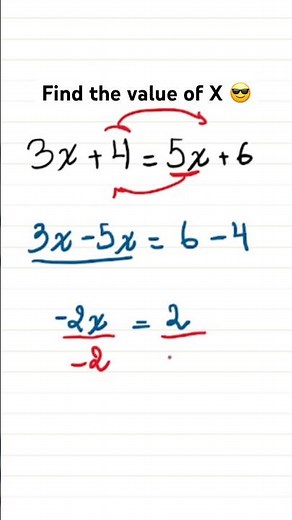 Find the value of X 😎
3x + 4 = 5x + 6
3x - 5x = 6 - 4
-2x = 2
-2